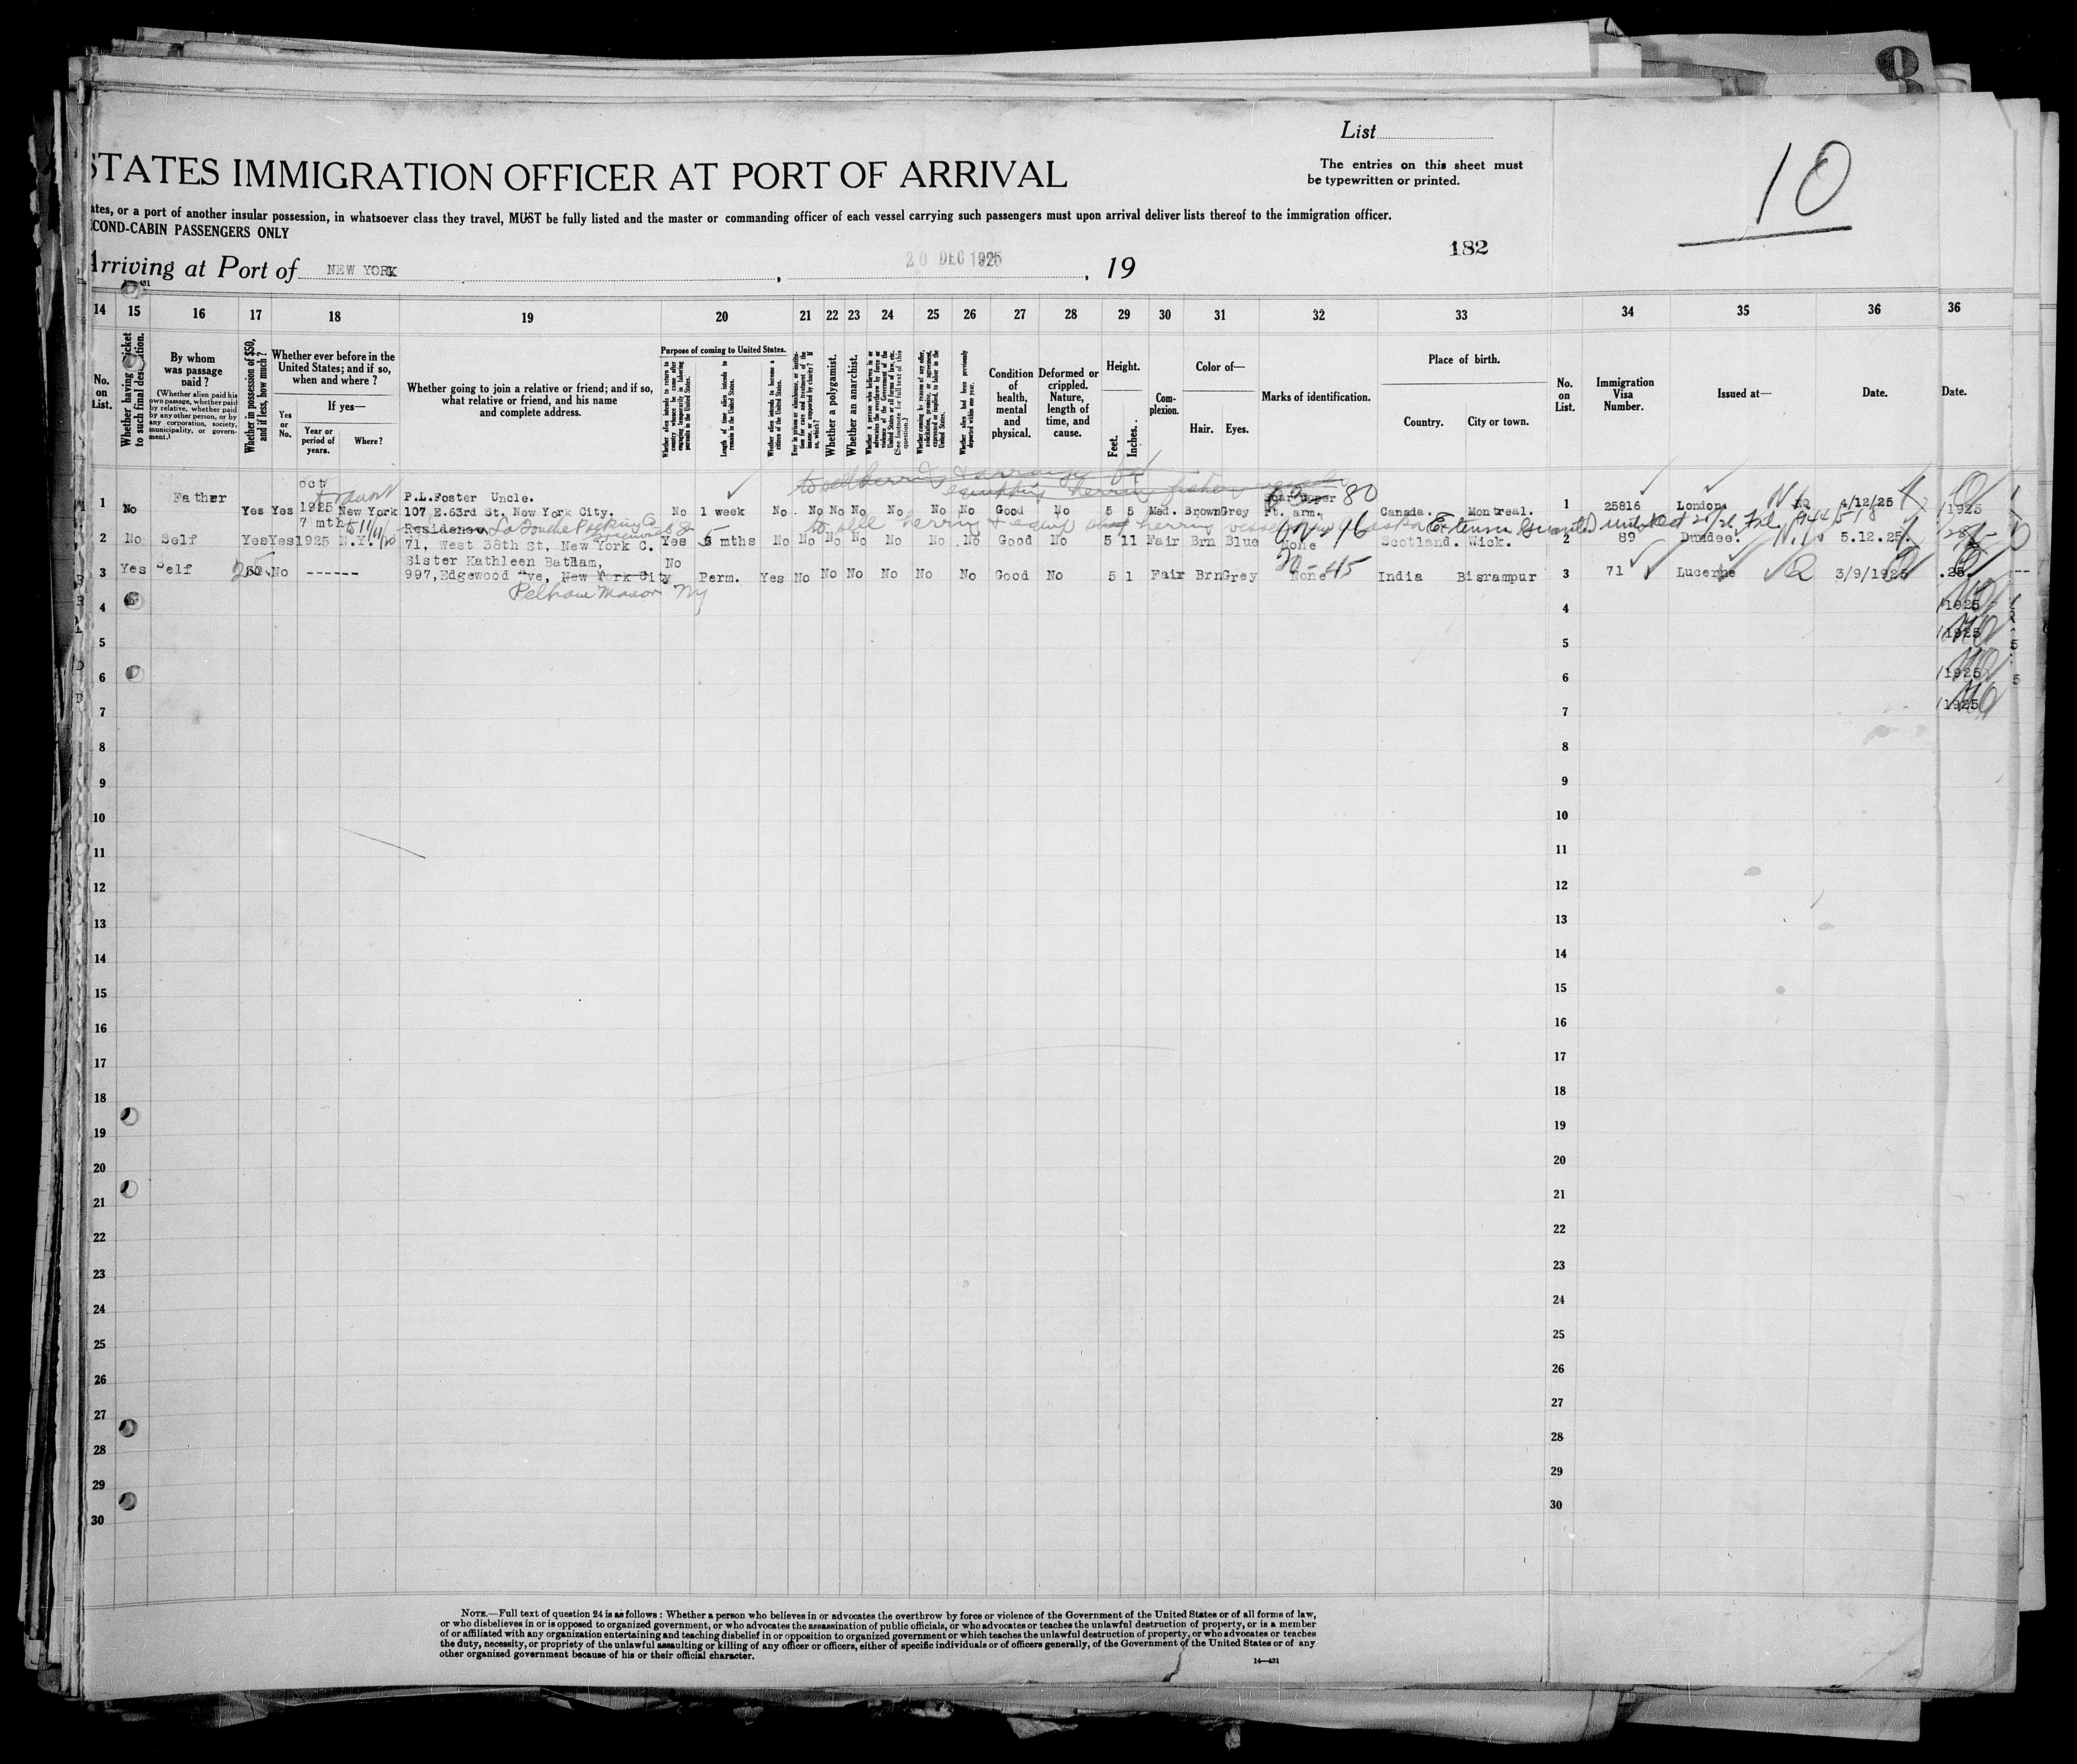 8
List
STATES IMMIGRATION OFFICER AT PORT OF ARRIVAL
The entries on this sheet must
be typewritten or printed.
10
ates, or a port of another insular possession, in whatsoever class they travel, MUST be fully listed and the master or commanding officer of each vessel carrying such passengers must upon arrival deliver lists thereof to the immigration officer.
COND-CABIN PASSENGERS ONLY
182
Arriving at Port of NEW YORK, 20 DEC 1925, 19
14 15 16 17 18 19 20 21 22 23 24 25 26 27 28 29 30 31 32 33 34 35 36 36
No. on List.
Whether having ticket to such final destination.
By whom was passage paid?
(Whether alien paid his own passage, whether paid by relative, whether paid by any other person, or by any corporation, society, municipality, or government.)
Whether in possession of $50, and if less, how much?
Whether ever before in the United States; and if so, when and where?
If yes—
Yes or No.
Year or period of years.
Where?
Whether going to join a relative or friend; and if so, what relative or friend, and his name and complete address.
Purpose of coming to United States.
Whether alien intends to return to country whence he came after engaging temporarily in laboring pursuits in the United States.
Length of time alien intends to remain in the United States.
Whether alien intends to become a citizen of the United States.
Ever in prison or almshouse, or institution for care and treatment of the insane, or supported by charity? If so, which?
Whether a polygamist.
Whether an anarchist.
Whether a person who believes in or advocates the overthrow by force or violence of the Government of the United States or all forms of law, etc. (See footnote for full text of this question.)
Whether coming by reason of any offer, solicitation, promise, or agreement, expressed or implied, to labor in the United States.
Whether alien had been previously deported within one year.
Condition of health, mental and physical.
Deformed or crippled. Nature, length of time, and cause.
Height.
Feet. Inches.
Complexion.
Color of—
Hair. Eyes.
Marks of identification.
Place of birth.
Country. City or town.
No. on List.
Immigration Visa Number.
Issued at—
Date.
Date.
1 No Father Yes Yes oct 1925 New York P.L.Foster Uncle.
107 E.63rd St. New York City. No 1 week No. No No No No No No Good No 5 5 Med. Brown Grey Scar upper Rt. arm. 80 Canada. Montreal. 1 25816 London. 4/12/25 /1925
to sell herring & equip herring vessels Alaska Extension Granted until
2 No Self Yes Yes 7 mths 1925 N.Y. Residence, La Touche Packing Co
71, West 38th St, New York C. Yes 6 mths No No No No No No No Good No 5 11 Fair Brn Blue None Scotland. Wick. 2 89 Dundee. 5.12.25.
3 Yes Self No ------ Sister Kathleen Batham,
997, Edgewood Ave, New York City No Perm. Yes No No No No No No Good No 5 1 Fair Brn Grey None India Bisrampur 3 71 Lucerne 3/9/1925 .25.
Pelham Manor NY
4 4 /1925
5 5 /1925
6 6 /1925
7 7 /1925
8 8
9 9
10 10
11 11
12 12
13 13
14 14
15 15
16 16
17 17
18 18
19 19
20 20
21 21
22 22
23 23
24 24
25 25
26 26
27 27
28 28
29 29
30 30
NOTE.—Full text of question 24 is as follows: Whether a person who believes in or advocates the overthrow by force or violence of the Government of the United States or of all forms of law,
or who disbelieves in or is opposed to organized government, or who advocates the assassination of public officials, or who advocates or teaches the unlawful destruction of property, or is a member
of or affiliated with any organization entertaining and teaching disbelief in or opposition to organized government or which teaches the unlawful destruction of property, or who advocates or teaches
the duty, necessity, or propriety of the unlawful assaulting or killing of any officer or officers, either of specific individuals or of officers generally, of the Government of the United States or of any
other organized government because of his or their official character.
14—431